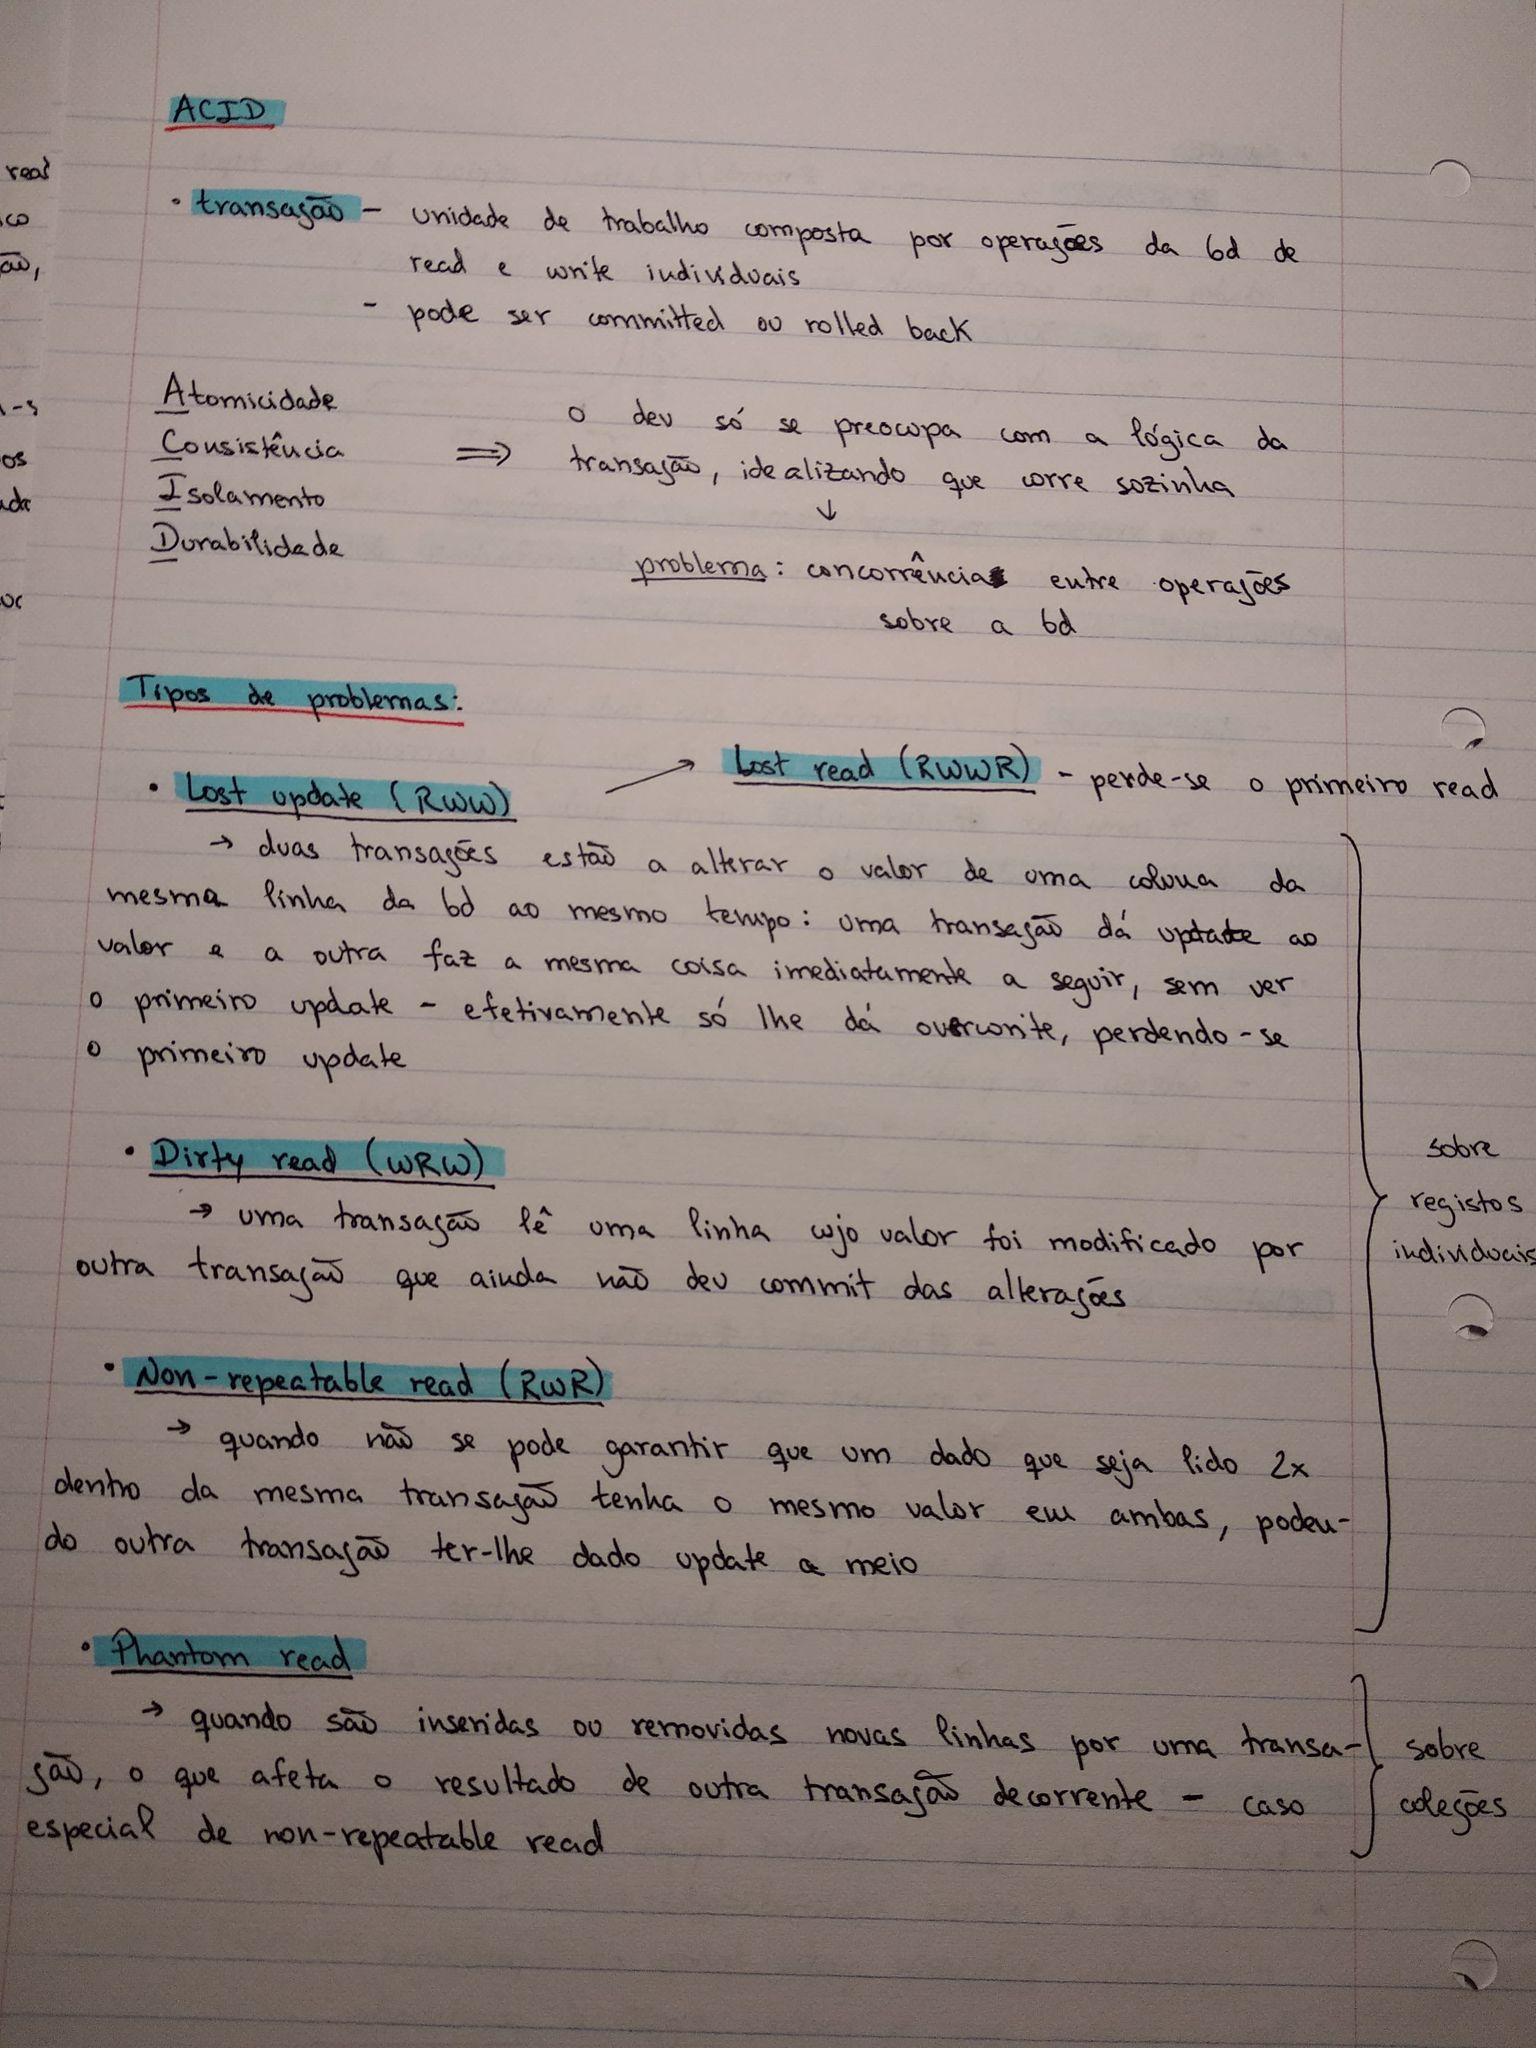 ACID
· transação - unidade de trabalho composta por operações da bd de
read e write individuais
- pode ser committed ou rolled back
Atomicidade
Consistência
Isolamento
Durabilidade
⇒
o dev só se preocupa com a lógica da
transação, idealizando que corre sozinha
↓
problema: concorrência entre operações
sobre a bd
Tipos de problemas:
• Lost update (RWW) → Lost read (RWWR) - perde-se o primeiro read
→ duas transações estão a alterar o valor de uma coluna da
mesma linha da bd ao mesmo tempo: uma transação dá update ao
valor e a outra faz a mesma coisa imediatamente a seguir, sem ver
o primeiro update - efetivamente só lhe dá overwrite, perdendo-se
o primeiro update
• Dirty read (WRW)
→ uma transação lê uma linha cujo valor foi modificado por
outra transação que ainda não deu commit das alterações
• Non-repeatable read (RWR)
→ quando não se pode garantir que um dado que seja lido 2x
dentro da mesma transação tenha o mesmo valor em ambas, poden-
do outra transação ter-lhe dado update a meio
sobre
registos
individuais
• Phantom read
→ quando são inseridas ou removidas novas linhas por uma transa-
ção, o que afeta o resultado de outra transação decorrente - caso
especial de non-repeatable read
sobre
coleções
real
ão,
os